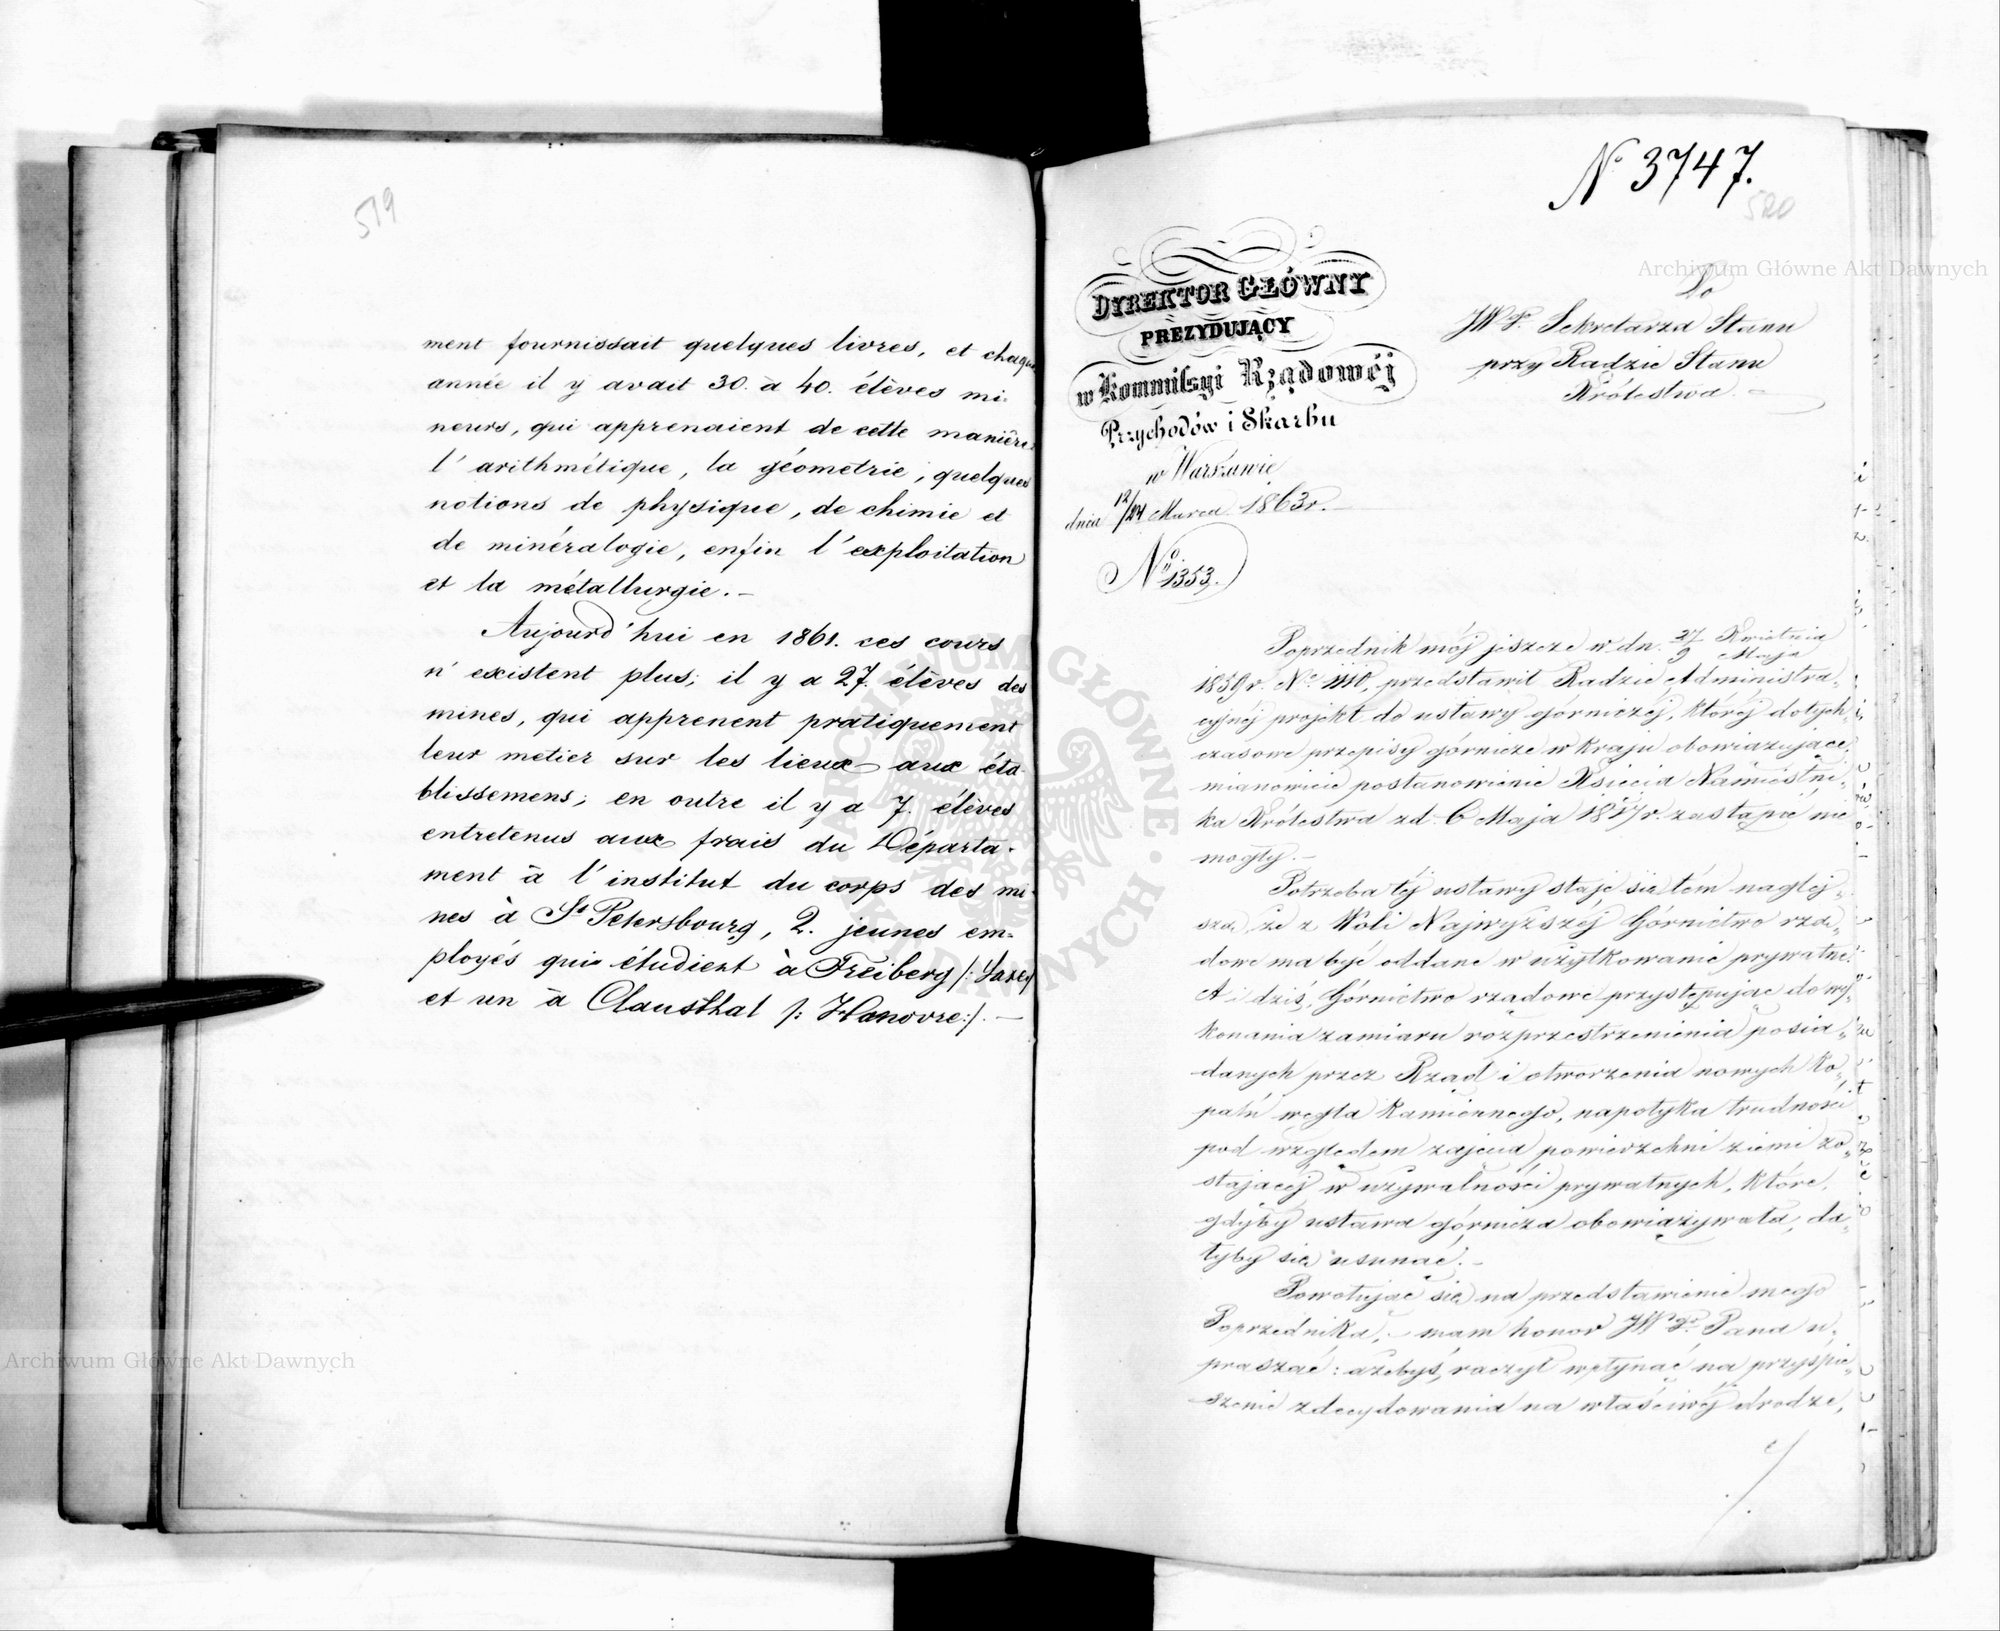 519
ment fournissait quelques livres, et chaque
année il y avait 30. à 40. élèves mi-
neurs, qui apprenaient de cette manière
l'arithmétique, la géometrie, quelques
notions de physique, de chimie et
de minéralogie, enfin l'exploitation
et la métallurgie. —
Aujourd'hui en 1861. ces cours
n'existent plus; il y a 27. élèves des
mines, qui apprenent pratiquement
leur metier sur les lieux aux éta-
blissemens; en outre il y a 7. élèves
entretenus aux frais du Départa-
ment à l'institut du corps des mi-
nes à St Petersbourg, 2. jeunes em-
ployés qui étudient à Freiberg /: Saxe
et un à Clausthal /: Hanovre:/. —
N° 3747.
520
DYREKTOR GŁÓWNY
PREZYDUJĄCY
w Kommissyi Rządowéj
Przychodów i Skarbu
w Warszawie
dnia 12/24 Marca 1863r. —
No 1353.
Do
JWgo Sekretarza Stanu
przy Radzie Stanu
Królestwa. —
Poprzednik mój jeszcze w dn. 27/9 Kwietnia/Maja
1859r. No 1110, przedstawił Radzie Administra-
cyjnéj projekt do ustawy górniczéj, któréj dotych-
czasowe przepisy górnicze w kraju obowiązujące,
mianowicie postanowienie Księcia Namiestni-
ka Królestwa z d. 6 Maja 1817r. zastąpić nie
mogły. —
Potrzeba téj ustawy staje się tém naglej-
szą, że z Woli Najwyższéj Górnictwo rzą-
dowe ma być oddane w użytkowanie prywatne.
A i dziś, Górnictwo rządowe przystępując do wy-
konania zamiaru rozprzestrzenienia posia-
danych przez Rząd i otworzenia nowych ko-
palń węgla kamiennego, napotyka trudności
pod względem zajęcia powierzchni ziemi zo-
stającéj w używalności prywatnych, które,
gdyby ustawa górnicza obowiązywała, da-
łyby się usunąć. —
Powołując się na przedstawienie mego
Poprzednika, — mam honor JWgo Pana u-
praszać: ażebyś raczył wpłynąć na przyśpie-
szenie zdecydowania na właściwéj drodze,
Archiwum Główne Akt Dawnych
Archiwum Główne Akt Dawnych
ARCHIWUM GŁÓWNE AKT DAWNYCH